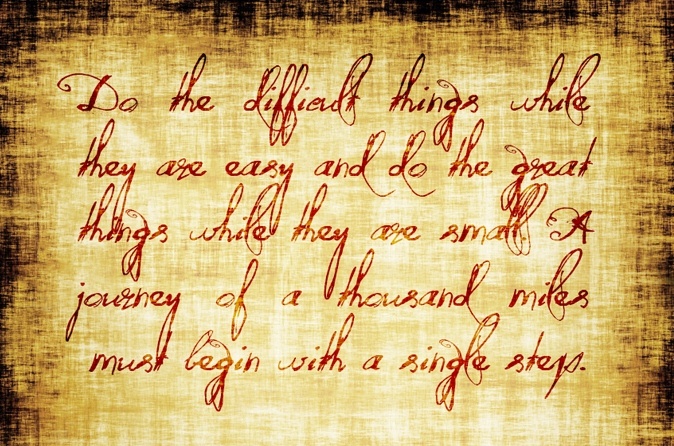 Do the difficult things while
they are easy and do the great
things while they are small. A
journey of a thousand miles
must begin with a single step.